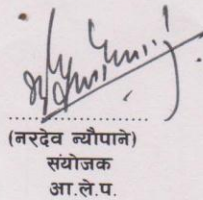 (नरदेव न्यौपाने)
संयोजक
आ.ले.प.